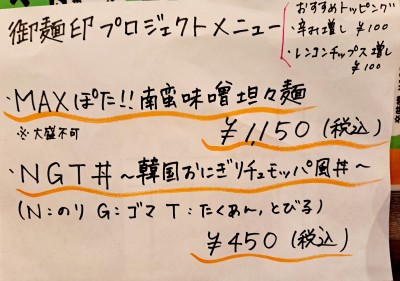 御麺印プロジェクトメニュー
おすすめトッピング
・辛み増し ¥100
・レンコンチップス増し
¥100
・MAXぽた!!南蛮味噌坦々麺
※大盛不可
¥1,150(税込)
・NGT丼～韓国おにぎりチュモッパ風丼～
(N:のり G:ゴマ T:たくあん,とびる)
¥450(税込)